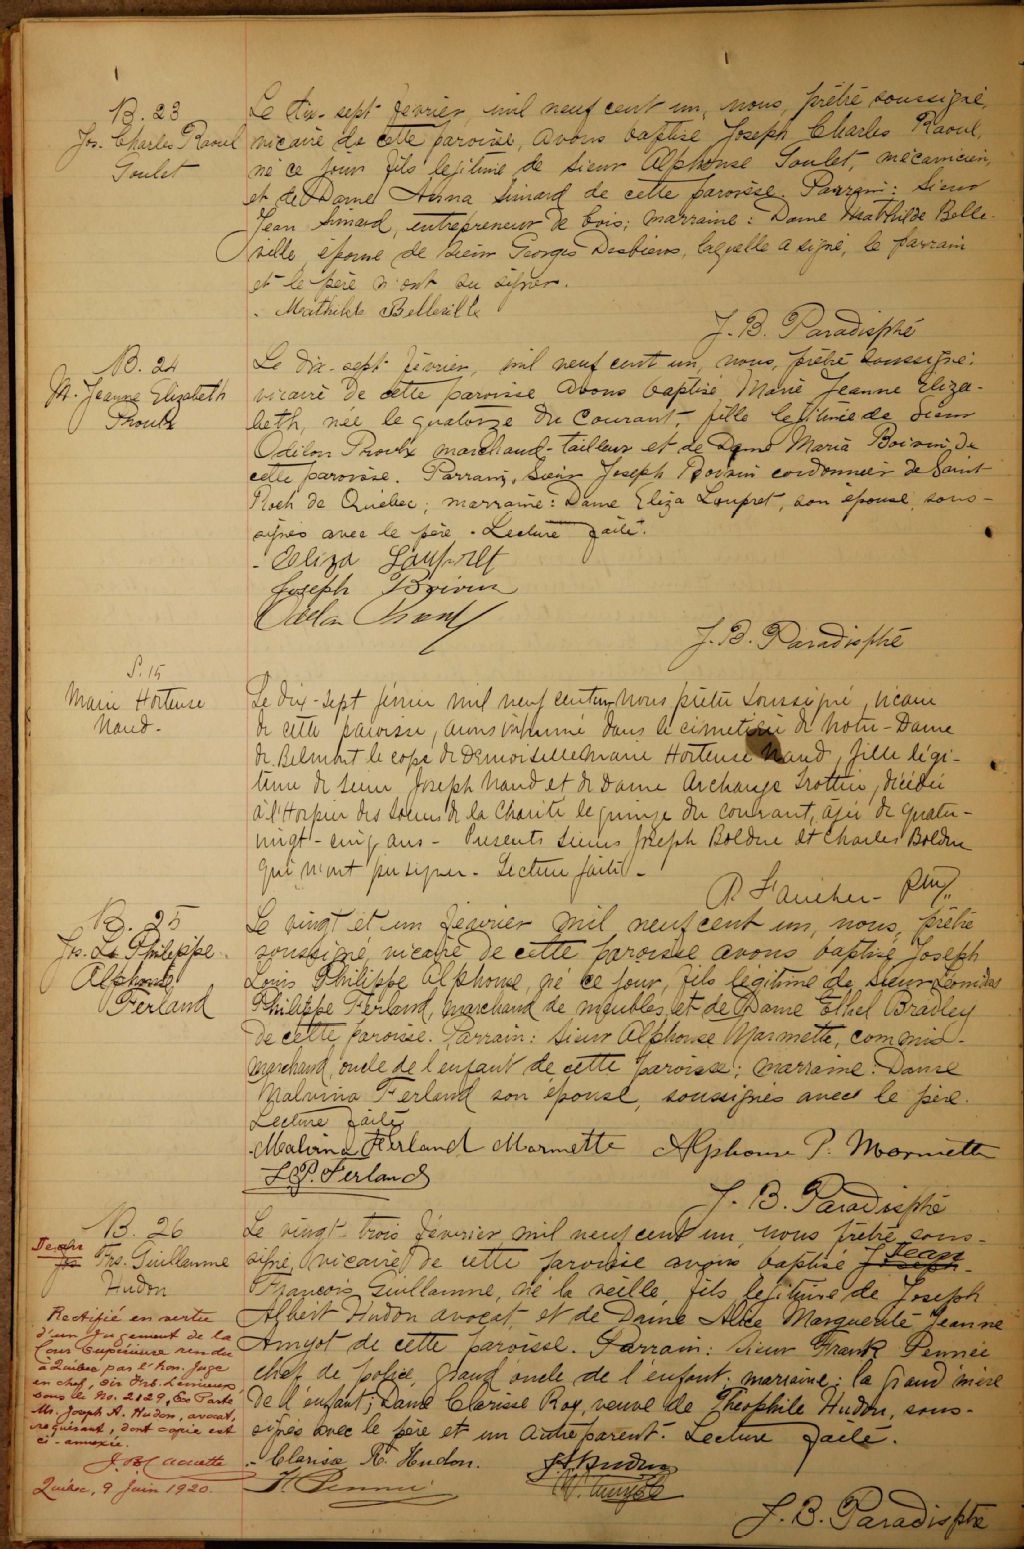 B. 23
Jos. Charles Raoul
Goulet
Le dix-sept février, mil neuf cent un, nous, prêtre soussigné,
vicaire de cette paroisse, avons baptisé Joseph Charles Raoul,
né ce jour fils légitime de Sieur Alphonse Goulet, mécanicien,
et de Dame Anna Simard de cette paroisse. Parrain: Sieur
Jean Simard, entrepreneur de bois; marraine: Dame Mathilde Belle-
ville, épouse de Sieur Georges Desbiens, laquelle a signé, le parrain
et le père n'ont su signer.
Mathilde Belleville
J. B. Paradis ptre
B. 24
M. Jeanne Elizabeth
Proulx
Le dix-sept février, mil neuf cent un, nous, prêtre soussigné,
vicaire de cette paroisse avons baptisé Marie Jeanne Eliza-
beth, née le quatorze du courant, fille légitime de Sieur
Odilon Proulx marchand-tailleur et de Dame Maria Boivin, de
cette paroisse. Parrain, Sieur Joseph Boivin cordonnier de Saint
Roch de Québec; marraine: Dame Eliza Loupret, son épouse, sous-
signés avec le père. Lecture faite.
Eliza Loupret
Joseph Boivin
Odilon Proulx
J. B. Paradis ptre
S. 15
Marie Hortense
Naud.
Le dix-sept février mil neuf cent un nous prêtre soussigné, vicaire
de cette paroisse, avons inhumé dans le cimetière de Notre-Dame
de Belmont le corps de Demoiselle Marie Hortense Naud, fille légi-
time de Sieur Joseph Naud et de Dame Archange Trottier, décédée
à l'Hospice des Soeurs de la Charité le quinze du courant, âgée de quatre-
vingt-cinq ans - Présents Sieurs Joseph Bolduc et Charles Bolduc
qui n'ont pu signer - Lecture faite -
P. Faucher - ptre
B. 25
Jos. Ls Philippe
Alphonse
Ferland
Le vingt et un février mil neuf cent un, nous, prêtre
soussigné, vicaire de cette paroisse avons baptisé Joseph
Louis Philippe Alphonse, né ce jour, fils légitime de Sieur Léonidas
Philippe Ferland, marchand de meubles et de Dame Ethel Bradley
de cette paroisse. Parrain: Sieur Alphonse Marmette, commis-
marchand, oncle de l'enfant de cette paroisse; marraine: Dame
Malvina Ferland son épouse, soussignés avec le père.
Lecture faite
Malvina Ferland Marmette Alphonse P. Marmette
L.P. Ferland
J. B. Paradis ptre
B. 26
Jean
Jos
Frs. Guillaume
Hudon
Rectifié en vertu
d'un jugement de la
Cour Supérieure rendu
à Québec par l'hon. Juge
en chef, Sir Frs. Lemieux
sous le No. 2129, Ex Parte
Mr. Joseph A. Hudon, avocat,
requérant, dont copie est
ci-annexée.
Québec, 9 juin 1920.
Le vingt-trois février mil neuf cent un, nous prêtre sous-
signé, vicaire de cette paroisse avons baptisé Joseph Jean
François Guillaume, né la veille, fils légitime de Joseph
Albert Hudon avocat, et de Dame Alice Marguerite Jeanne
Amyot de cette paroisse. Parrain: Sieur Frank Pennée
chef de police, grand oncle de l'enfant; marraine: la grand'mère
de l'enfant, Dame Clarisse Roy, veuve de Théophile Hudon, sous-
signés avec le père et un autre parent. Lecture faite.
Clarisse R. Hudon. J A Hudon
F Pennée
J. B. Paradis ptre